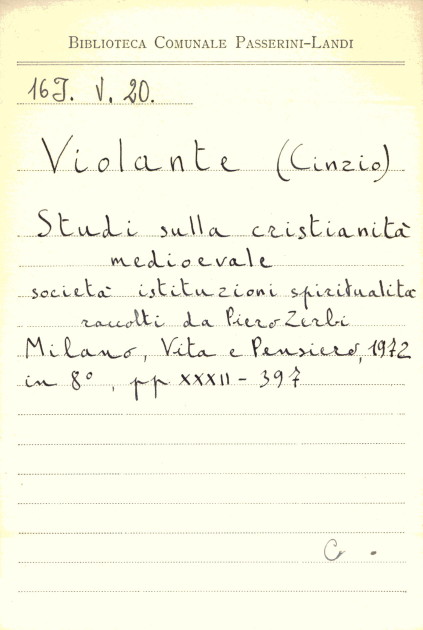 BIBLIOTECA COMUNALE PASSERINI-LANDI
16J. V. 20.
Violante (Cinzio)
Studi sulla cristianità
medioevale
società istituzioni spiritualità
raccolti da Piero Zerbi
Milano, Vita e Pensiero, 1972
in 8°, pp XXXII - 397